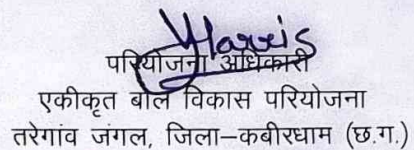 परियोजना अधिकारी
एकीकृत बाल विकास परियोजना
तरेगांव जंगल, जिला–कबीरधाम (छ.ग.)